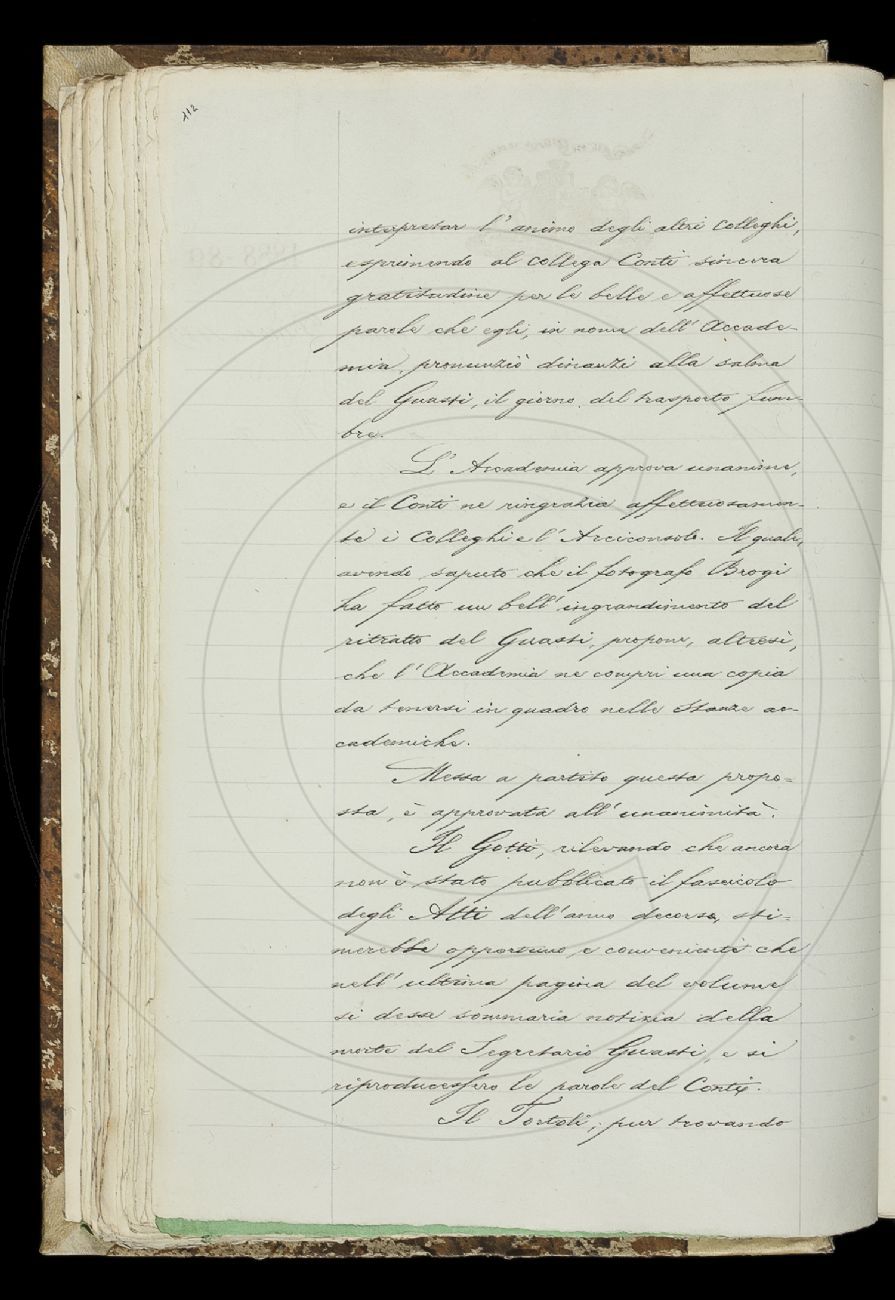 112
interpretar l'animo degli altri Colleghi,
esprimendo al collega Conti sincera
gratitudine per le belle e affettuose
parole che egli, in nome dell'Accade-
mia, pronunziò dinanzi alla salma
del Guasti, il giorno del trasporto fune-
bre.
L'Accademia approva unanime,
e il Conti ne ringrazia affettuosamen-
te i Colleghi e l'Arciconsolo. Il quale,
avendo saputo che il fotografo Brogi
ha fatto un bell'ingrandimento del
ritratto del Guasti, propone, altresì,
che l'Accademia ne compri una copia
da tenersi in quadro nelle stanze ac-
cademiche.
Messa a partito questa propo-
sta, è approvata all'unanimità.
Il Gotti, rilevando che ancora
non è stato pubblicato il fascicolo
degli Atti dell'anno decorso, sti-
merebbe opportuno e conveniente che
nell'ultima pagina del volume
si desse sommaria notizia della
morte del Segretario Guasti, e si
riproducessero le parole del Conti.
Il Tortoli, pur trovando